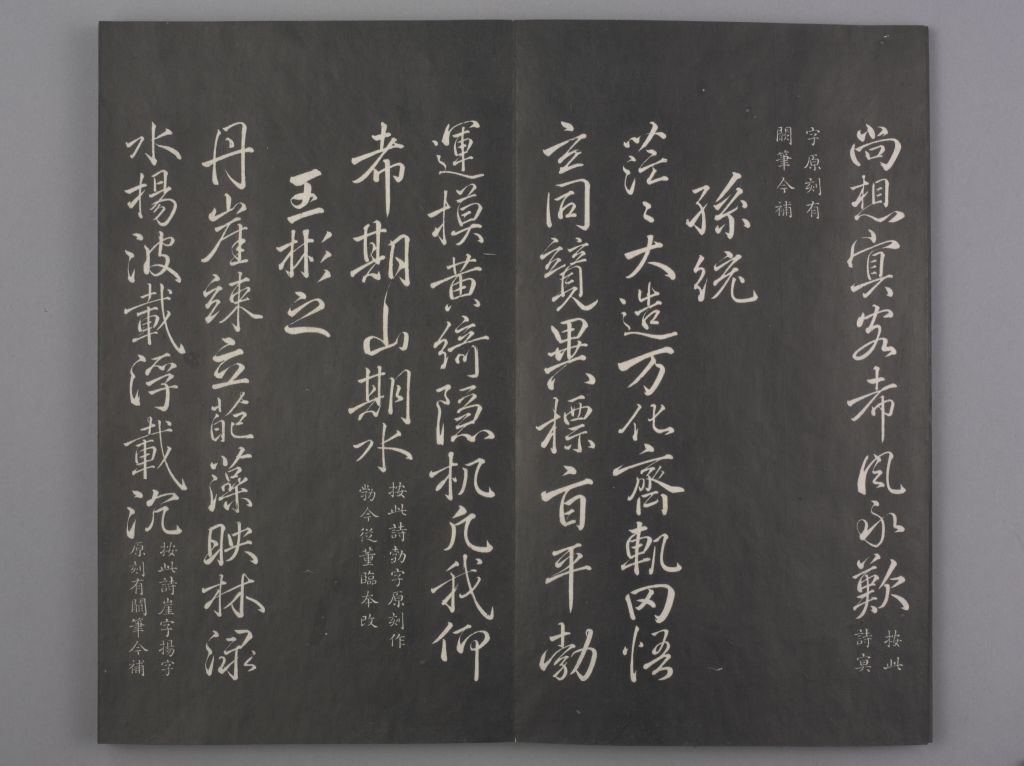 尚想寘客希風永歎
按此
詩寘
字原刻有
闕筆今補
孫統
茫〻大造万化齊軌罔悟
玄同競異標旨平勃
運摸黃綺隱机凢我仰
希期山期水
按此詩勃字原刻作
勃今從董臨本改
王彬之
丹崖竦立葩藻映林淥
水揚波載浮載沉
按此詩崖字揚字
原刻有闕筆今補